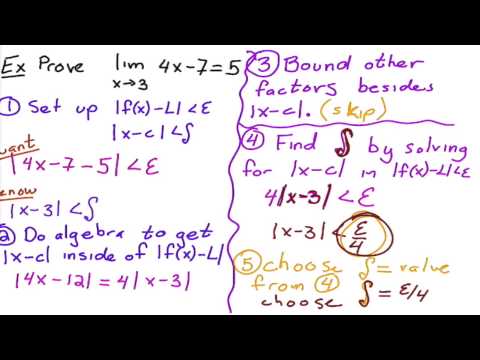 Ex Prove lim 4x-7=5
x→3
① Set up |f(x)-L|<ε
|x-c|<δ
want
|4x-7-5|<ε
know
|x-3|<δ
② Do algebra to get
|x-c| inside of |f(x)-L|
|4x-12|=4|x-3|
③ Bound other
factors besides
|x-c|. (skip)
④ Find δ by solving
for |x-c| in |f(x)-L|<ε
4|x-3|<ε
|x-3|<ε/4
⑤ choose δ=value
from ④
choose δ=ε/4